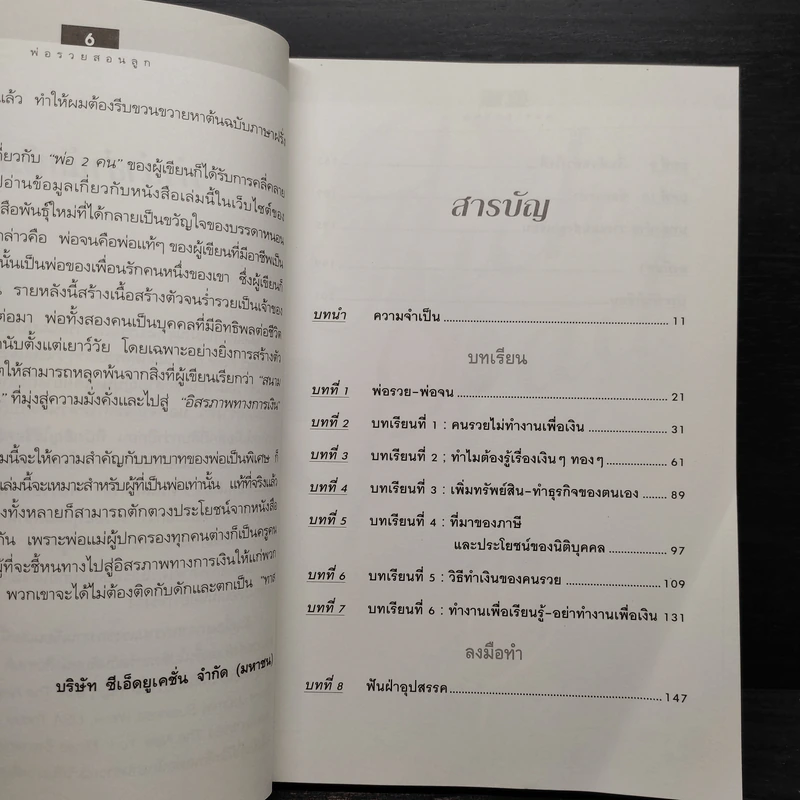 6
พ่อรวยสอนลูก
แล้ว ทำให้ผมต้องรีบขวนขวายหาต้นฉบับภาษาฝรั่ง
กี่ยวกับ "พ่อ 2 คน" ของผู้เขียนก็ได้รับการคลี่คลาย
ปอ่านข้อมูลเกี่ยวกับหนังสือเล่มนี้ในเว็บไซต์ของ
สือพันธุ์ใหม่ที่ได้กลายเป็นขวัญใจของบรรดาหนอน
กล่าวคือ พ่อจนคือพ่อแท้ๆ ของผู้เขียนที่มีอาชีพเป็น
นั้นเป็นพ่อของเพื่อนรักคนหนึ่งของเขา ซึ่งผู้เขียนก็
รายหลังนี้สร้างเนื้อสร้างตัวจนร่ำรวยเป็นเจ้าของ
ต่อมา พ่อทั้งสองคนเป็นบุคคลที่มีอิทธิพลต่อชีวิต
นับตั้งแต่เยาว์วัย โดยเฉพาะอย่างยิ่งการสร้างตัว
ให้สามารถหลุดพ้นจากสิ่งที่ผู้เขียนเรียกว่า "สนาม
" ที่มุ่งสู่ความมั่งคั่งและไปสู่ "อิสรภาพทางการเงิน"
มนี้จะให้ความสำคัญกับบทบาทของพ่อเป็นพิเศษ ก็
เล่มนี้จะเหมาะสำหรับผู้ที่เป็นพ่อเท่านั้น แท้ที่จริงแล้ว
งทั้งหลายก็สามารถตักตวงประโยชน์จากหนังสือ
กัน เพราะพ่อแม่ผู้ปกครองทุกคนต่างก็เป็นครูคน
ผู้ที่จะชี้หนทางไปสู่อิสรภาพทางการเงินให้แก่พวก
พวกเขาจะได้ไม่ต้องติดกับดักและตกเป็น "ทาส
บริษัท ซีเอ็ดยูเคชั่น จำกัด (มหาชน)
สารบัญ
บทนำ ความจำเป็น ........................................ 11
บทเรียน
บทที่ 1 พ่อรวย-พ่อจน ........................................ 21
บทที่ 2 บทเรียนที่ 1 : คนรวยไม่ทำงานเพื่อเงิน .................... 31
บทที่ 3 บทเรียนที่ 2 : ทำไมต้องรู้เรื่องเงินๆ ทองๆ .................... 61
บทที่ 4 บทเรียนที่ 3 : เพิ่มทรัพย์สิน-ทำธุรกิจของตนเอง ........ 89
บทที่ 5 บทเรียนที่ 4 : ที่มาของภาษี
และประโยชน์ของนิติบุคคล .................... 97
บทที่ 6 บทเรียนที่ 5 : วิธีทำเงินของคนรวย .................... 109
บทที่ 7 บทเรียนที่ 6 : ทำงานเพื่อเรียนรู้-อย่าทำงานเพื่อเงิน 131
ลงมือทำ
บทที่ 8 ฟันฝ่าอุปสรรค ........................................ 147